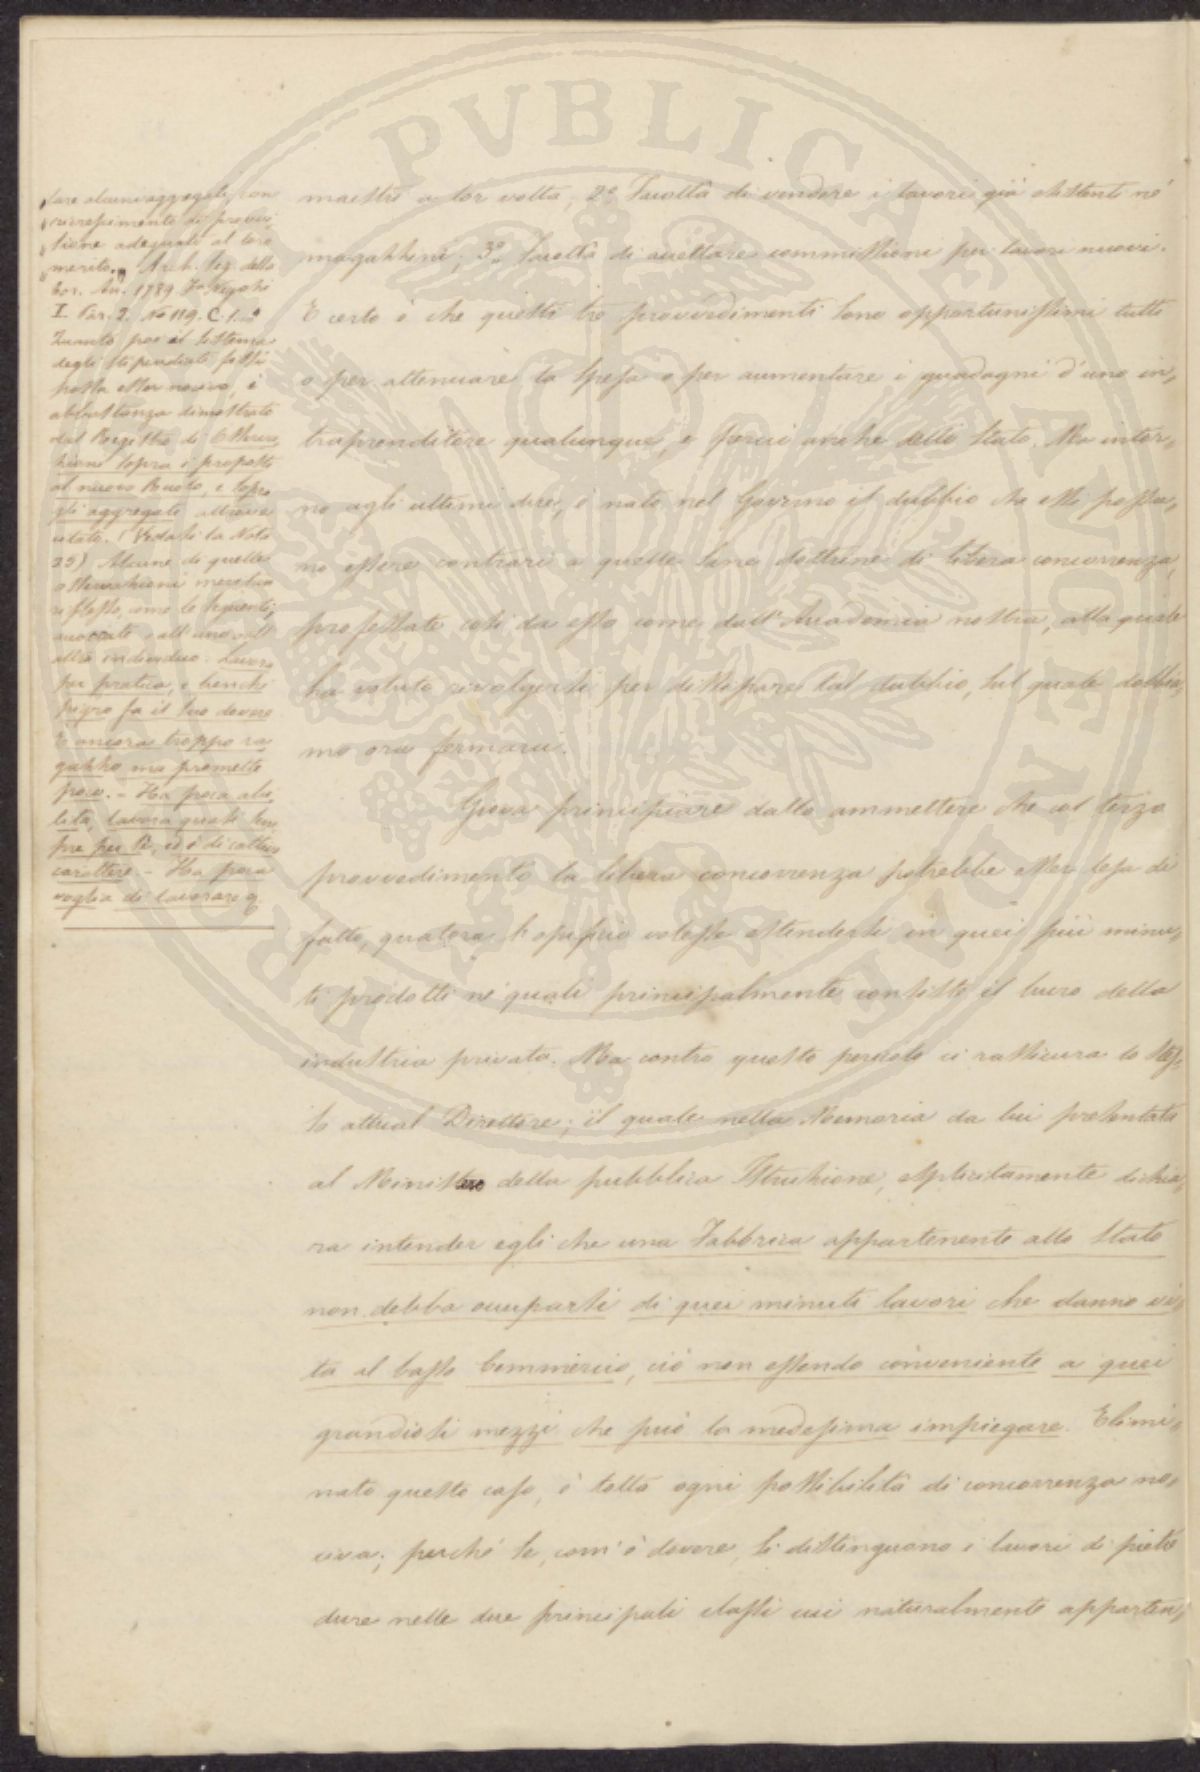 fare alcuni aggregati, con
accrescimento di provvi,
sione adeguati al loro
merito. Arch. Seg. della
Cor. An. 1789
I. Par. 2. No 119. C. 1.
Quanto poi il sistema
degli stipendiati fissi
possa esser nocivo, è
abbastanza dimostrato
dal Registro di Osserva,
zione sopra i proposti
al nuovo Ruolo, e sopra
gli aggregati altrove
citato. (Vedasi la Nota
25) Alcune di quelle
osservazioni meritano
riflesso, come le seguenti,
all'uno o all'
altro individuo. Lavora
per pratica, e benchè
pigro fa il suo dovere
È ancora troppo ra
gazzo ma promette
poco. - Ha poca abi
lità, lavora quasi sem,
pre per sè, ed è di cattivo
carattere. - Ha poca
voglia di lavorare
maestri a lor volta, 2.° Facoltà di vendere i lavori già esistenti ne'
magazzini, 3.° Facoltà di accettare commissioni per lavori nuovi.
E certo è che questi tre provvedimenti sono opportunissimi tutti
o per attenuare la spesa o per aumentare i guadagni d'uno in,
traprenditore qualunque, e perciò anche dello Stato. Ma intor,
no agli ultimi due, è nato nel Governo il dubbio che essi possa,
no essere contrari a quelle sane dottrine di libera concorrenza,
professate così da esso come dall'Accademia nostra, alla quale
ha voluto rivolgersi per dissipare tal dubbio, sul quale dobbia,
mo ora fermarci.
Giova principiare dallo ammettere che col terzo
provvedimento la libera concorrenza potrebbe esser lesa di
fatto, qualora l'opificio volesse estendersi in quei più minu,
ti prodotti ne' quali principalmente consiste il lucro della
industria privata. Ma contro questo pericolo ci rassicura lo stes,
so attual Direttore; il quale nella Memoria da lui presentata
al Ministero della pubblica Istruzione, esplicitamente dichia,
ra intender egli che una Fabbrica appartenente allo Stato
non debba occuparsi di quei minuti lavori che danno vi,
ta al basso Commercio, ciò non essendo conveniente a quei
grandiosi mezzi che può la medesima impiegare. Elimi,
nato questo caso, è tolta ogni possibilità di concorrenza no,
civa; perchè se, com'è dovere, si distinguono i lavori di pietre
dure nelle due principali classi cui naturalmente apparten,